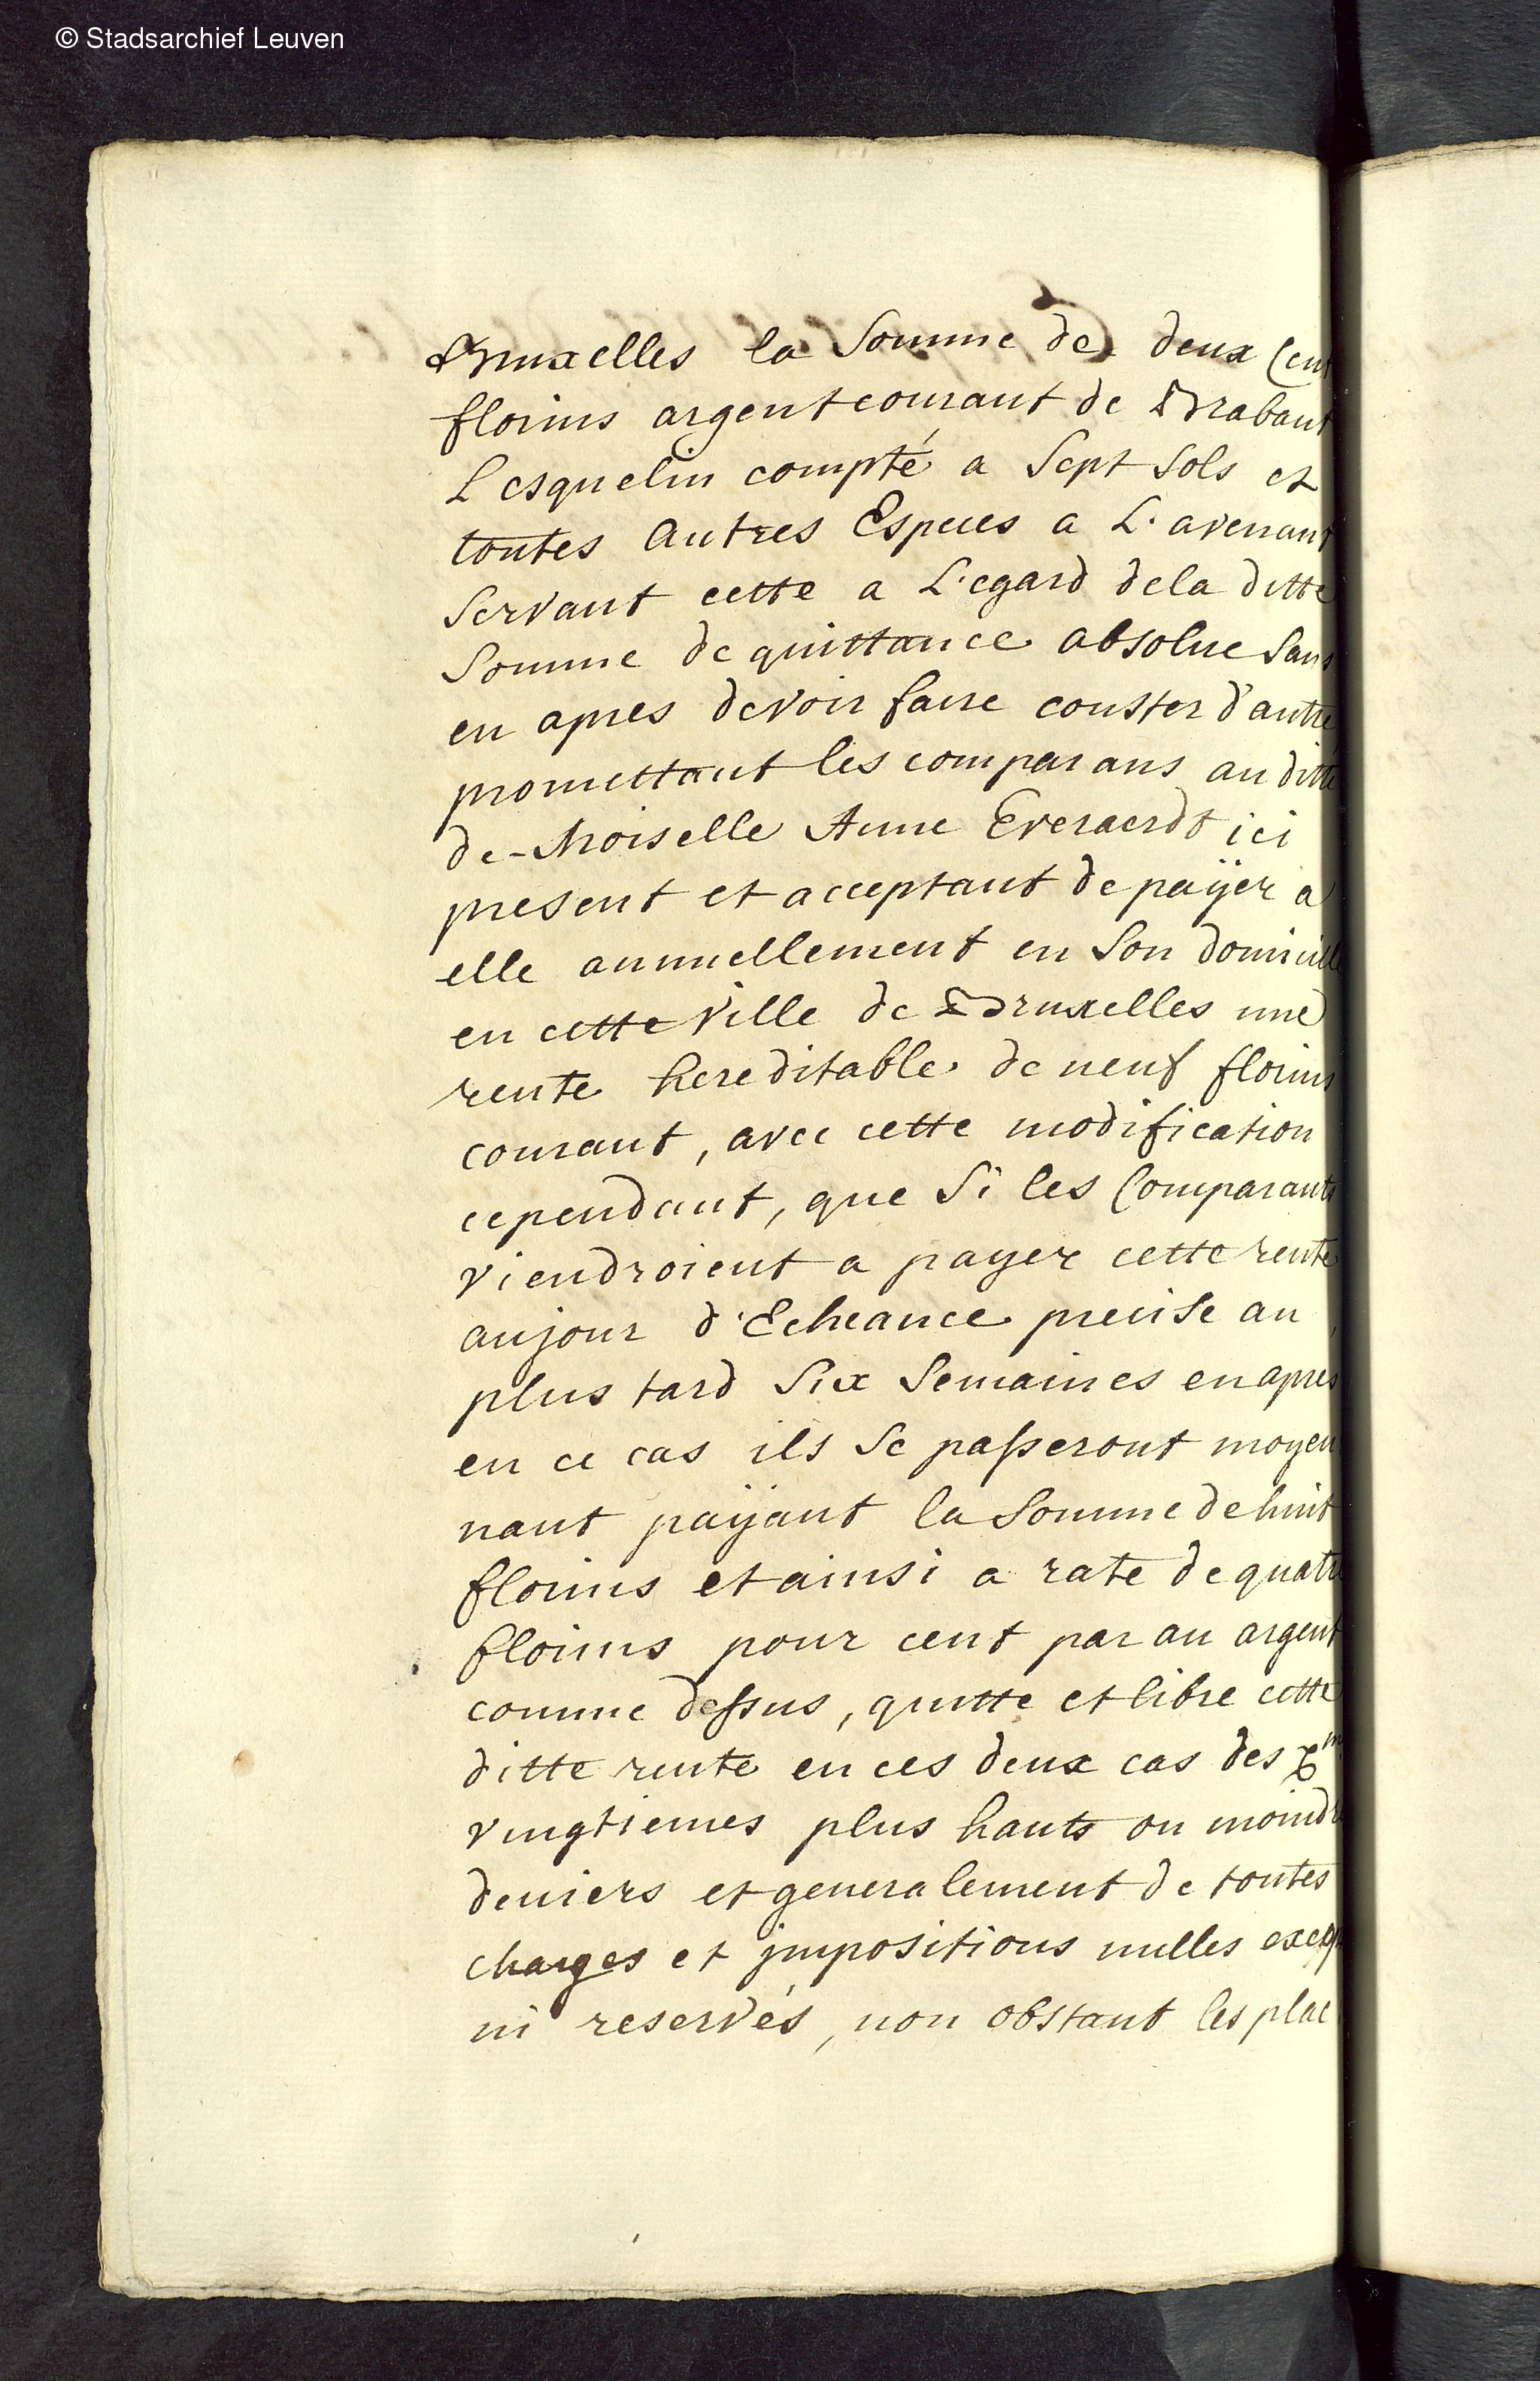 © Stadsarchief Leuven
Bruxelles la Somme de deux Cent
florins argent courant de Brabant
L'esquelin compté a Sept Sols et
toutes Autres Especes a L'avenant
Servant cette a L'egard dela ditte
Somme de quittance absolue Sans
en apres devoir faire conster d'autre,
promettant les comparans au ditte
de-Moiselle Anne Everaerdt ici
present et acceptant de païjer a
elle annuellement en Son domicille
en cette Ville de Bruxelles une
rente hereditable de neuf florins
courant, avec cette modification
cependant, que Si les Comparants
viendroient a payer cette rente
aujour d'Echeance precise au
plus tard Six Semaines en apres
en ce cas ils Se passeront moyen
nant païjant la Somme de huit
florins et ainsi a rate de quatre
florins pour cent par an argent
comme dessus, quitte et libre cette
ditte rente en ces deux cas des
vingtiemes plus hauts ou moindre
deniers et generalement de toutes
charges et jmpositions nulles
ni reservés, non obstant les plac